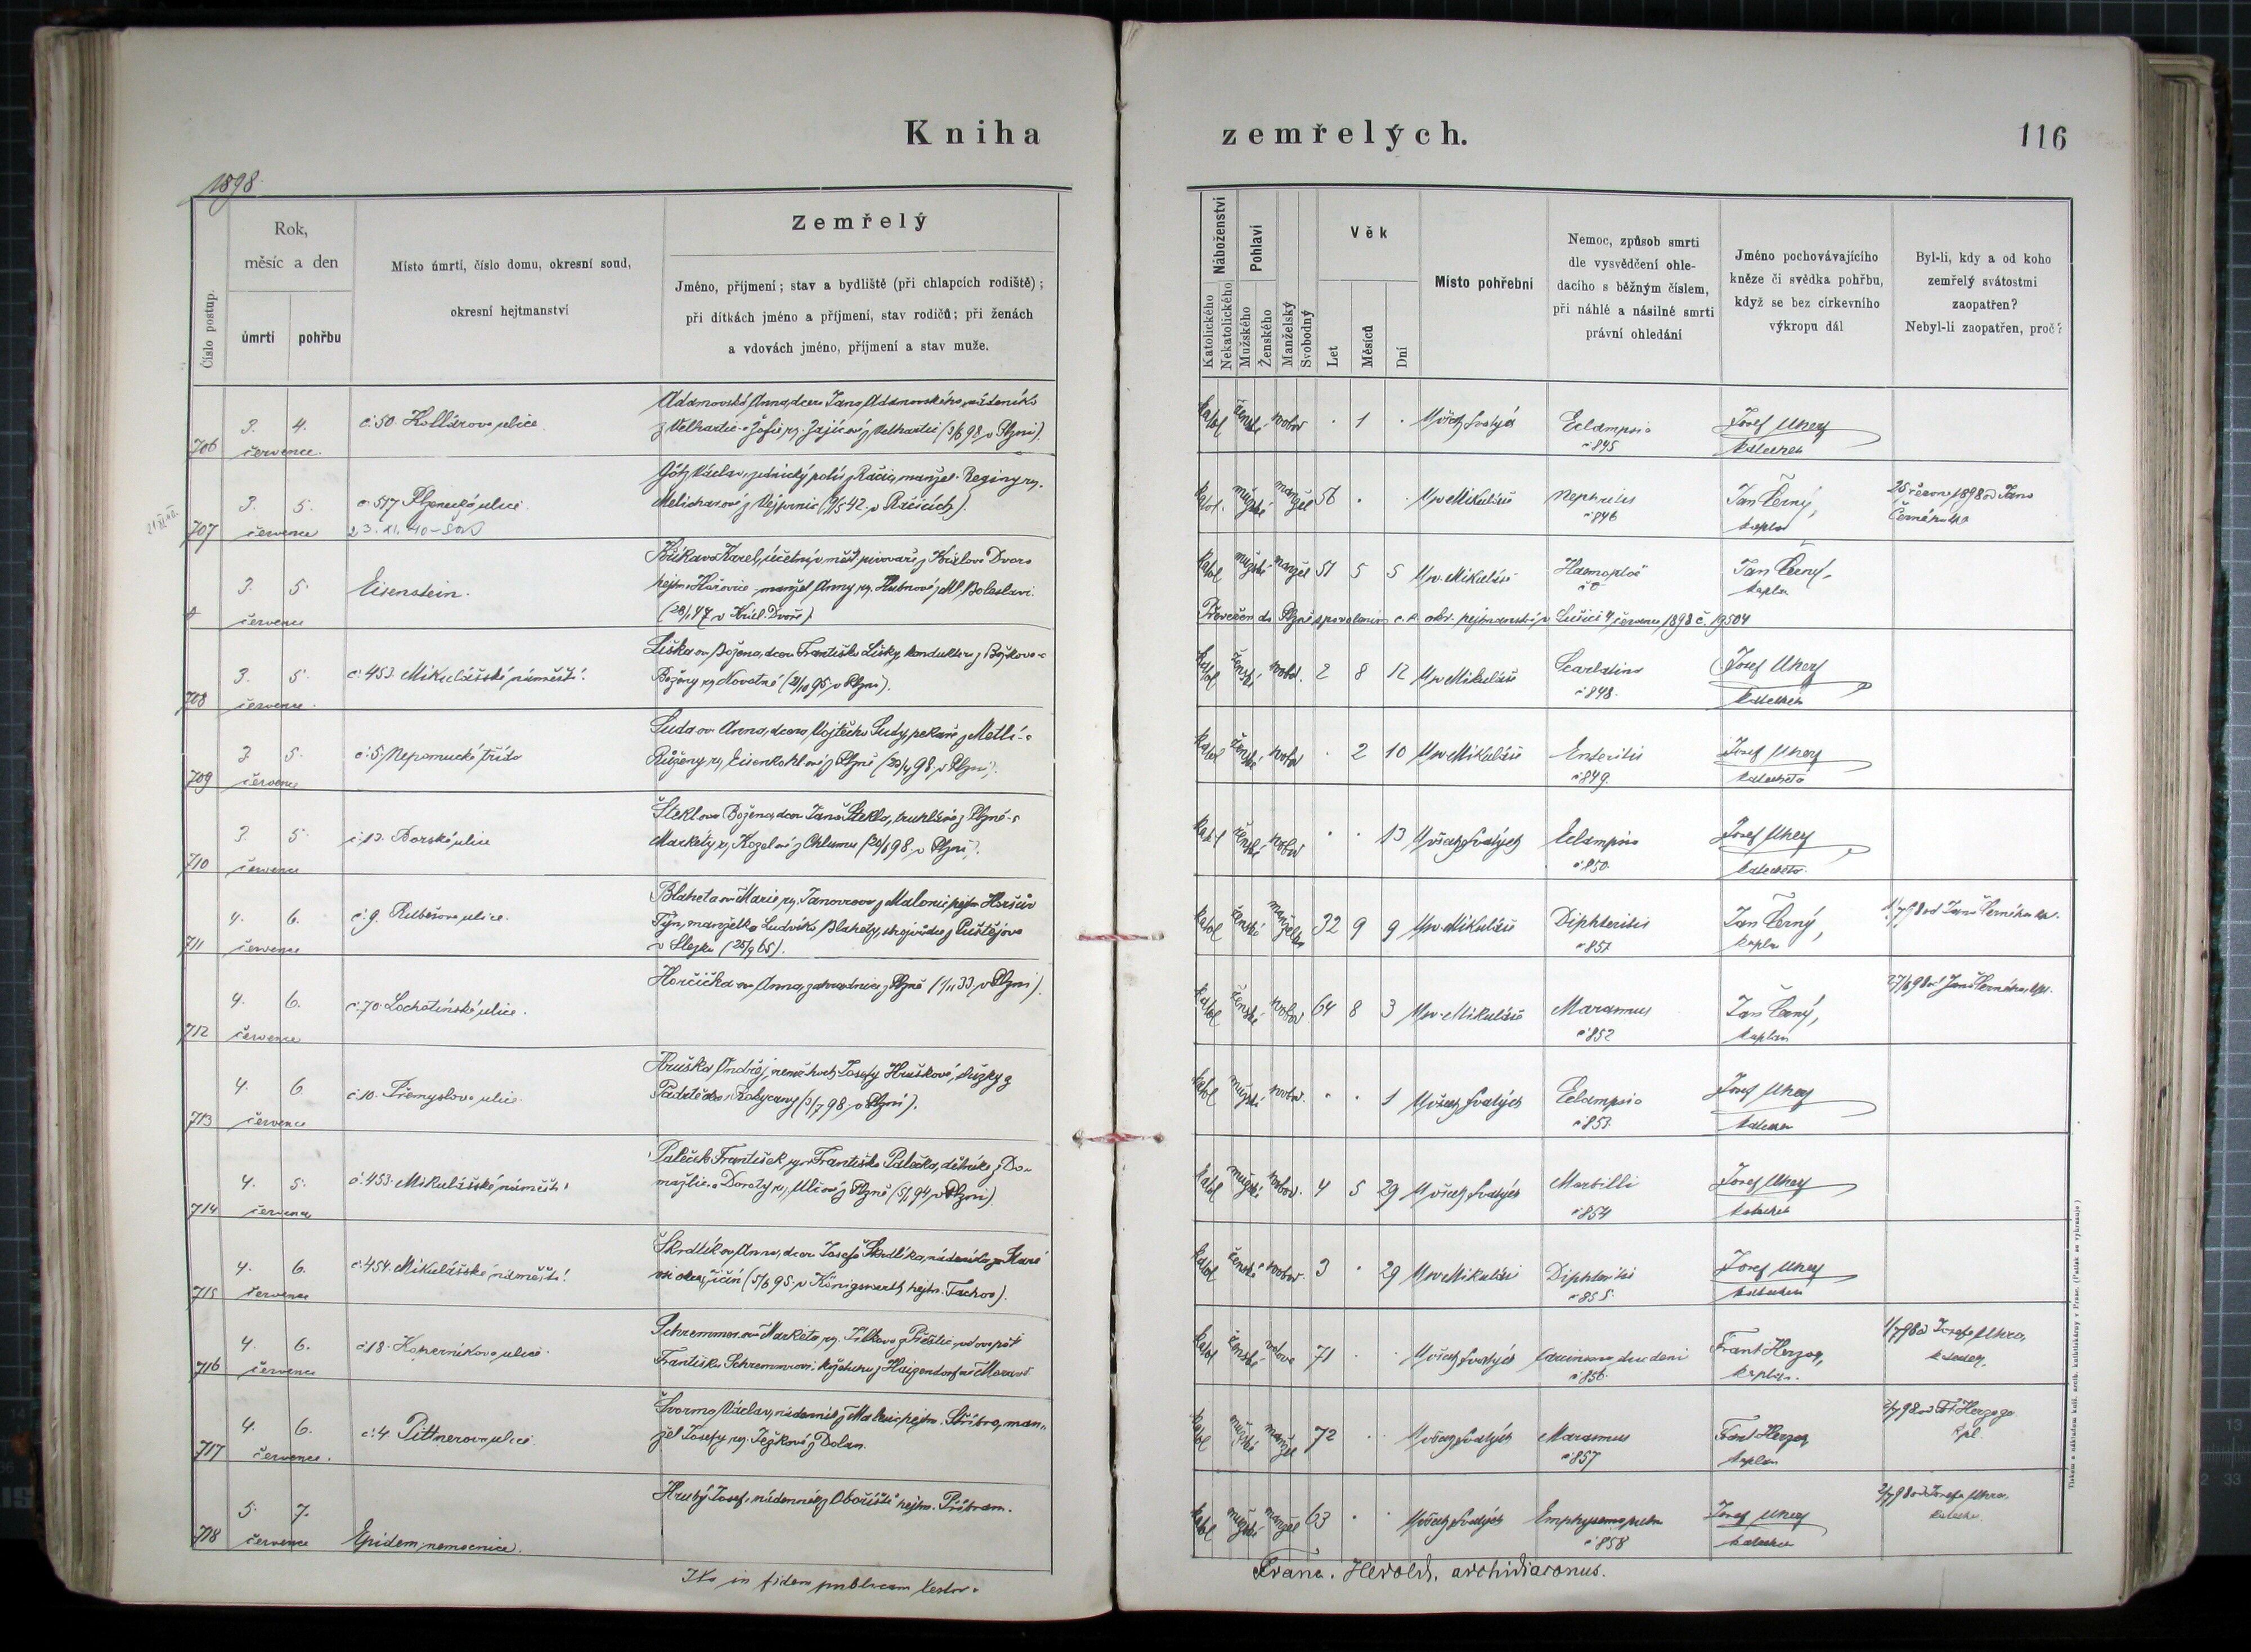 Kniha
zemřelých.
116
1898.
Číslo postup.
Rok,
měsíc a den
úmrtí
pohřbu
Místo úmrtí, číslo domu, okresní soud,
okresní hejtmanství
Zemřelý
Jméno, příjmení; stav a bydliště (při chlapcích rodiště);
při dítkách jméno a příjmení, stav rodičů; při ženách
a vdovách jméno, příjmení a stav muže.
Katolického
Nekatolického
Náboženství
Mužského
Ženského
Pohlaví
Manželský
Svobodný
Věk
Let
Měsíců
Dní
Místo pohřební
Nemoc, způsob smrti
dle vysvědčení ohle-
dacího s běžným číslem,
při náhlé a násilné smrti
právní ohledání
Jméno pochovávajícího
kněze či svědka pohřbu,
když se bez církevního
výkropu dál
Byl-li, kdy a od koho
zemřelý svátostmi
zaopatřen?
Nebyl-li zaopatřen, proč?
706 3. 4. července. č. 50. Kollárova ulice.
Adamovská Anna, dcera Jana Adamovského, nádeníka
z Velhartic a Žofie, roz. Zajícové z Velhartic (3/6 98 v Plzni).
katol žensk. svobod . 1 . U všech Svatých Eclampsia č 845 Josef Uhery katecheta
707 3. 5. července č. 517 Plzenecká ulice.
23. XI. 40
Götz Václav, z Račic, manžel Reginy, roz.
Melicharové z Vejvanic (9/5 42 v Račicích).
katol. mužské manžel 56 . . U sv Mikuláše Nephritis č 846 Jan Černý, kaplan
25 června 1898 od Jana
Černého
3. 5. července Eisenstein.
Křikava Karel, účetní v měšť. pivovaře z Králova Dvora
hejtm. Hořovice manžel Anny, roz. Hubnové z Ml. Boleslavi.
(28/1 47 v Král. Dvoře)
katol mužské manžel 51 5 5 U sv. Mikuláše Haemoptoë Jan Černý, kaplan
Převezen do Plzně s povolením c. k. okr. hejtmanství v Sušici 4 července 1898 č. 19504
708 3. 5. července. č. 453. Mikulášské náměstí.
Lišková Božena, dcera Františka Lišky, konduktora z Božkova a
Boženy, roz. Novotné (21/10 95 v Plzni).
katol ženské svobod. 2 8 12 U sv Mikuláše Scarlatina č 848. Josef Uhery katecheta
709 3. 5. července č. 5 Nepomucká třída
Sudová Anna, dcera Vojtěcha Sudy, pekaře z Metlí a
Růženy, roz. Eisenkohlové z Plzně (23/4 98 v Plzni).
katol ženské svobod . 2 10 U sv Mikuláše Enteritis č 849. Josef Uhery katecheta
710 3. 5. července č. 13. Borská ulice
Šteklová Božena, dcera Jana Štekla, truhláře z Plzně a
Markéty, roz. Kozelové z Chlumu (20/6 98 v Plzni).
katol ženské svobod . . 13 U všech Svatých Eclampsia č 850. Josef Uhery katecheta.
711 4. 6. července č. 9. Rubešova ulice.
Blahetová Marie, roz. Janovcová z Malonic, hejtm. Horšův
Týn, manželka Ludvíka Blahety, strojvůdce z Puštějova
v Slezku (25/9 65).
katol ženské manželka 32 9 9 U sv Mikuláše Diphteritis č 851 Jan Černý, kaplan
1/7 98 od Jana Černého kpl.
712 4. 6. července č. 70. Lochotínská ulice.
Horčičková Anna, zahradnice z Plzně (1/11 33 v Plzni).
katol ženské svobod. 64 8 3 U sv. Mikuláše Marasmus č 852 Jan Černý, kaplan
27/6 98 od Jana Černého, kpl.
713 4. 6. července č. 10. Přemyslova ulice.
Hruška Ondřej, nemanž. hoch Josefy Hruškové, služky z
Rokycany (3/7 98 v Plzni).
katol mužské svobod. . . 1 U všech Svatých Eclampsia č 853. Josef Uhery katecheta
714 4. 5. července č. 453. Mikulášské náměstí.
Paleček František, syn Františka Palečka, dělníka z Do-
mažlic a Doroty, roz. Ulčové z Plzně (5/1 94 v Plzni).
katol mužské svobod. 4 5 29 U všech Svatých Morbilli č 854 Josef Uhery katecheta
715 4. 6. července č. 454. Mikulášské náměstí.
Škrdlíková Anna, dcera Josefa Škrdlíka, nádeníka, ze Staré
vsi okres Jičín (5/6 95 v Königswarth, hejtm. Tachov).
katol ženské svobod. 3 . 29 U sv Mikuláše Diphteritis č 855. Josef Uhery katecheta
716 4. 6. července č. 18. Koperníkova ulice.
Schremmerová Markéta, roz. z Přeštic, vdova po
Františku Schremmerovi, z Haigendorf na Moravě
katol ženské vdova 71 . . U všech Svatých Carcinoma duodeni č 856. Frant Herzog, kaplan.
1/7 98 od Josefa Uhra,
katechety.
717 4. 6. července. č. 4. Tittnerova ulice.
Švarma Václav, nádeník z Malovic hejtm. Stříbro, man-
žel Josefy, roz. Ježkové z Dolan.
katol mužské manžel 72 . . U všech Svatých Marasmus č 857 Frant Herzog kaplan
2/7 98 od Fr Herzoga
kpl.
718 5. 7. července Epidem. nemocnice.
Hrubý Josef, nádeník z Obořiště hejtm. Příbram.
katol mužské manžel 63 . . U všech Svatých Emphysema pulm č 858 Josef Uhery katecheta
2/7 98 od Josefa Uhra,
katechety.
Ita in fidem publicam testor.
Franc. Herold, archidiaconus.